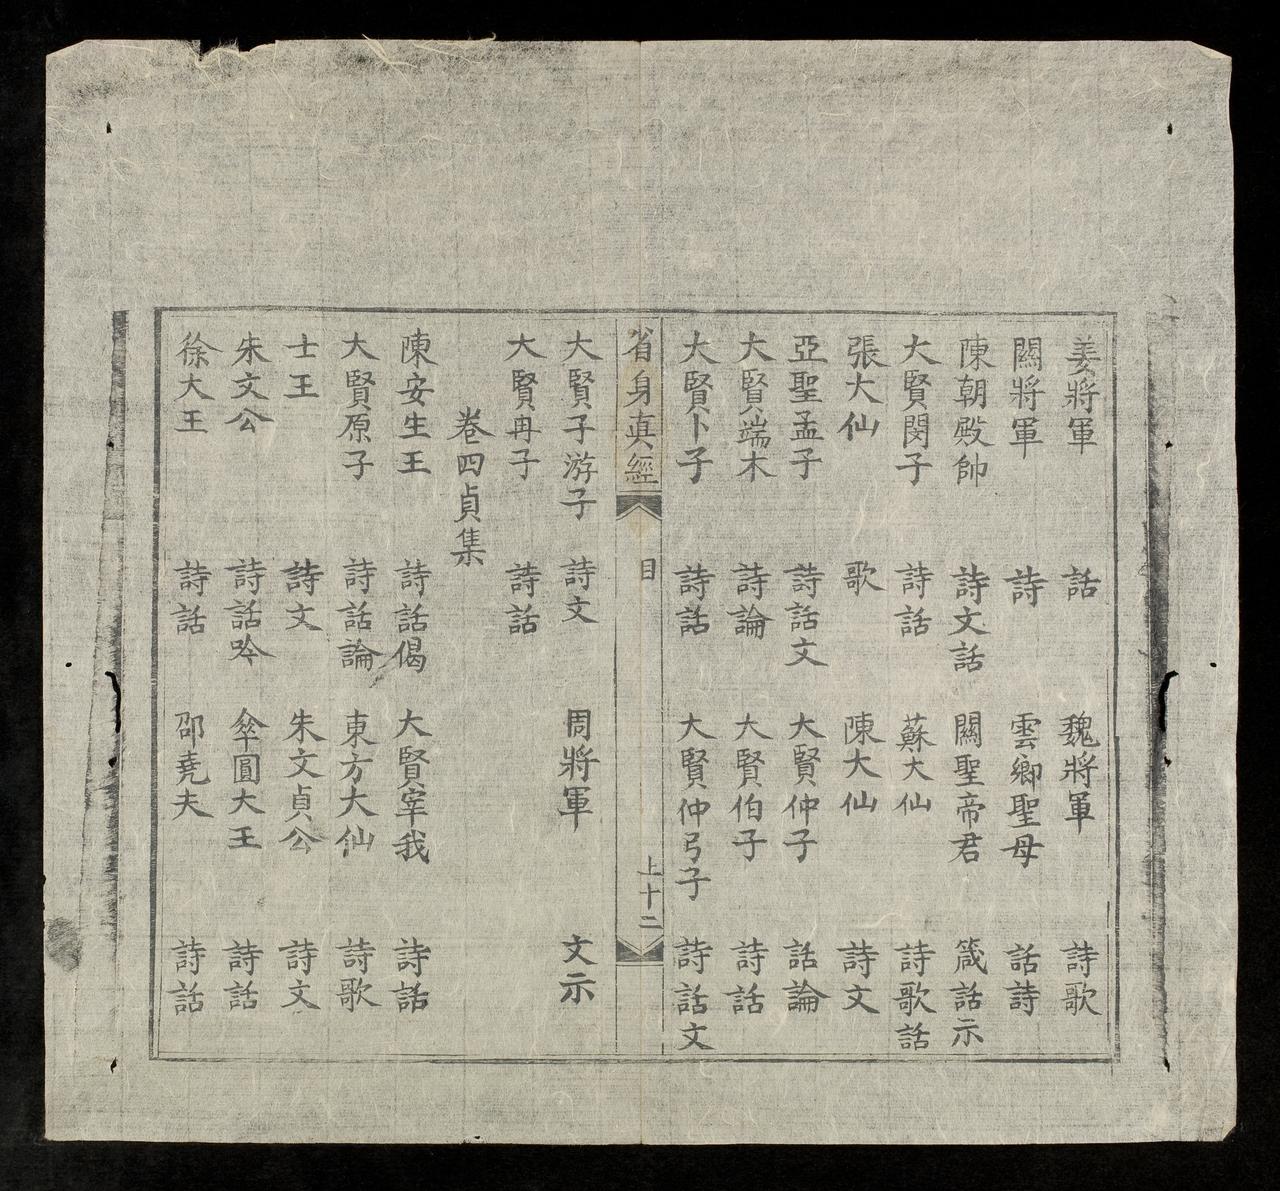 姜將軍 話 魏將軍 詩歌
關將軍 詩 雲鄉聖母 話詩
陳朝殿帥 詩文話 關聖帝君 箴話示
大賢閔子 詩話 蘇大仙 詩歌話
張大仙 歌 陳大仙 詩文
亞聖孟子 詩話文 大賢仲子 話論
大賢端木 詩論 大賢伯子 詩話
大賢卜子 詩話 大賢仲弓子 詩話文
省身真經 目 上十二
大賢子游子 詩文 周將軍 文示
大賢冉子 詩話
卷四貞集
陳安生王 詩話偈 大賢宰我 詩話
大賢原子 詩話論 東方大仙 詩歌
士王 詩文 朱文貞公 詩文
朱文公 詩話吟 傘圓大王 詩話
徐大王 詩話 邵堯夫 詩話